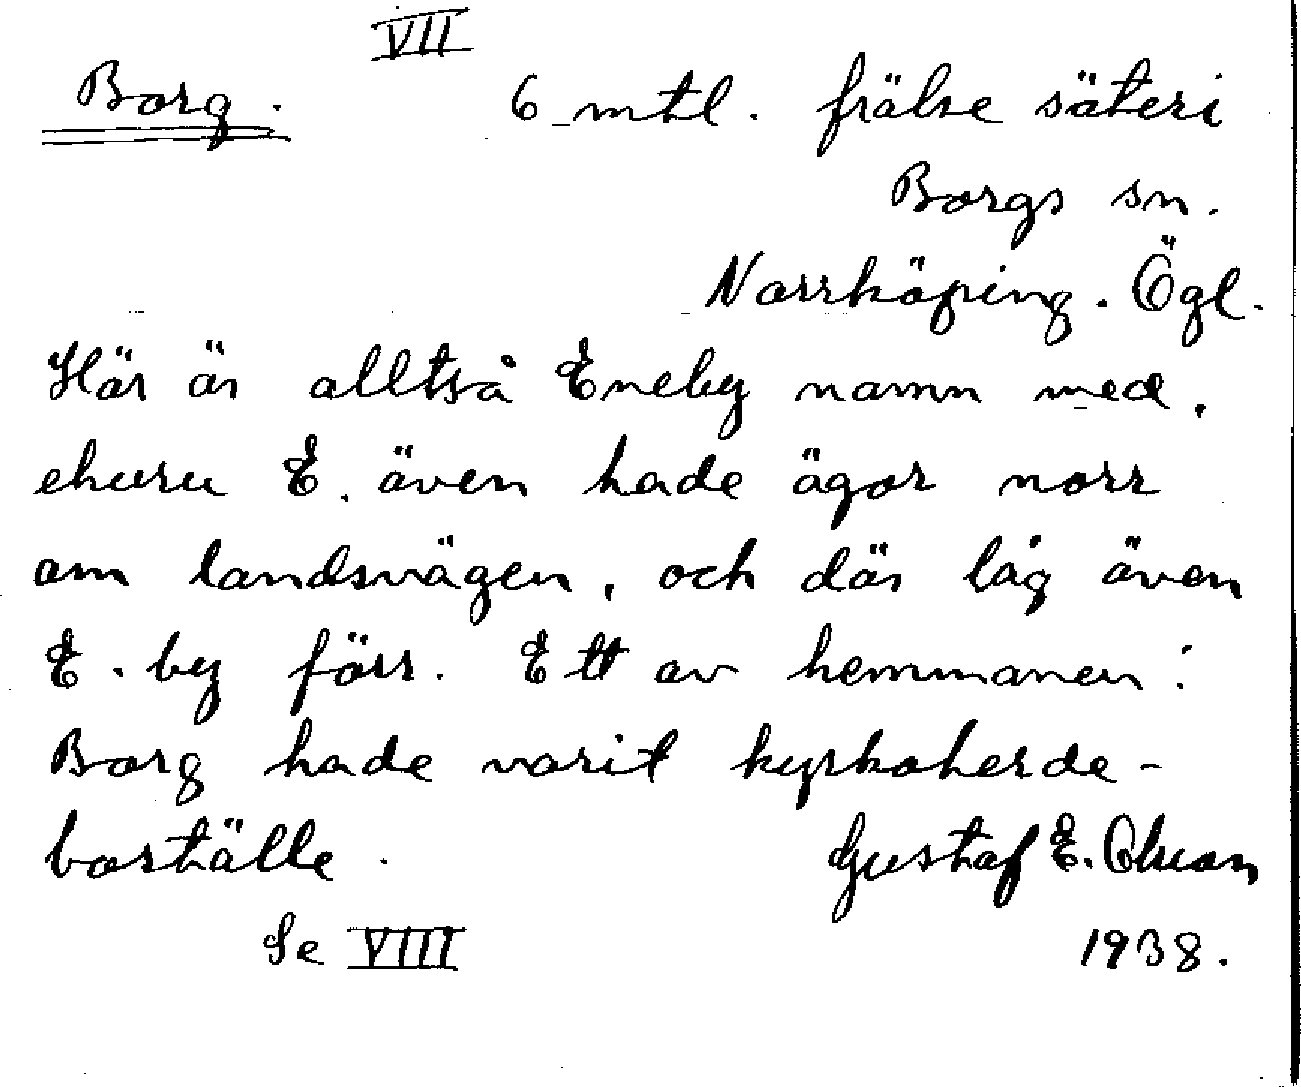 VII
Borg. 6 mtl. frälse säteri
Borgs sn.
Norrköping. Ögl.
Här är alltså Eneby namn med,
ehuru E. även hade ägor norr
om landsvägen, och där låg även
E. by förr. Ett av hemmanen i
Borg hade varit kyrkoherde-
boställe. Gustaf E.
Se VIII 1938.